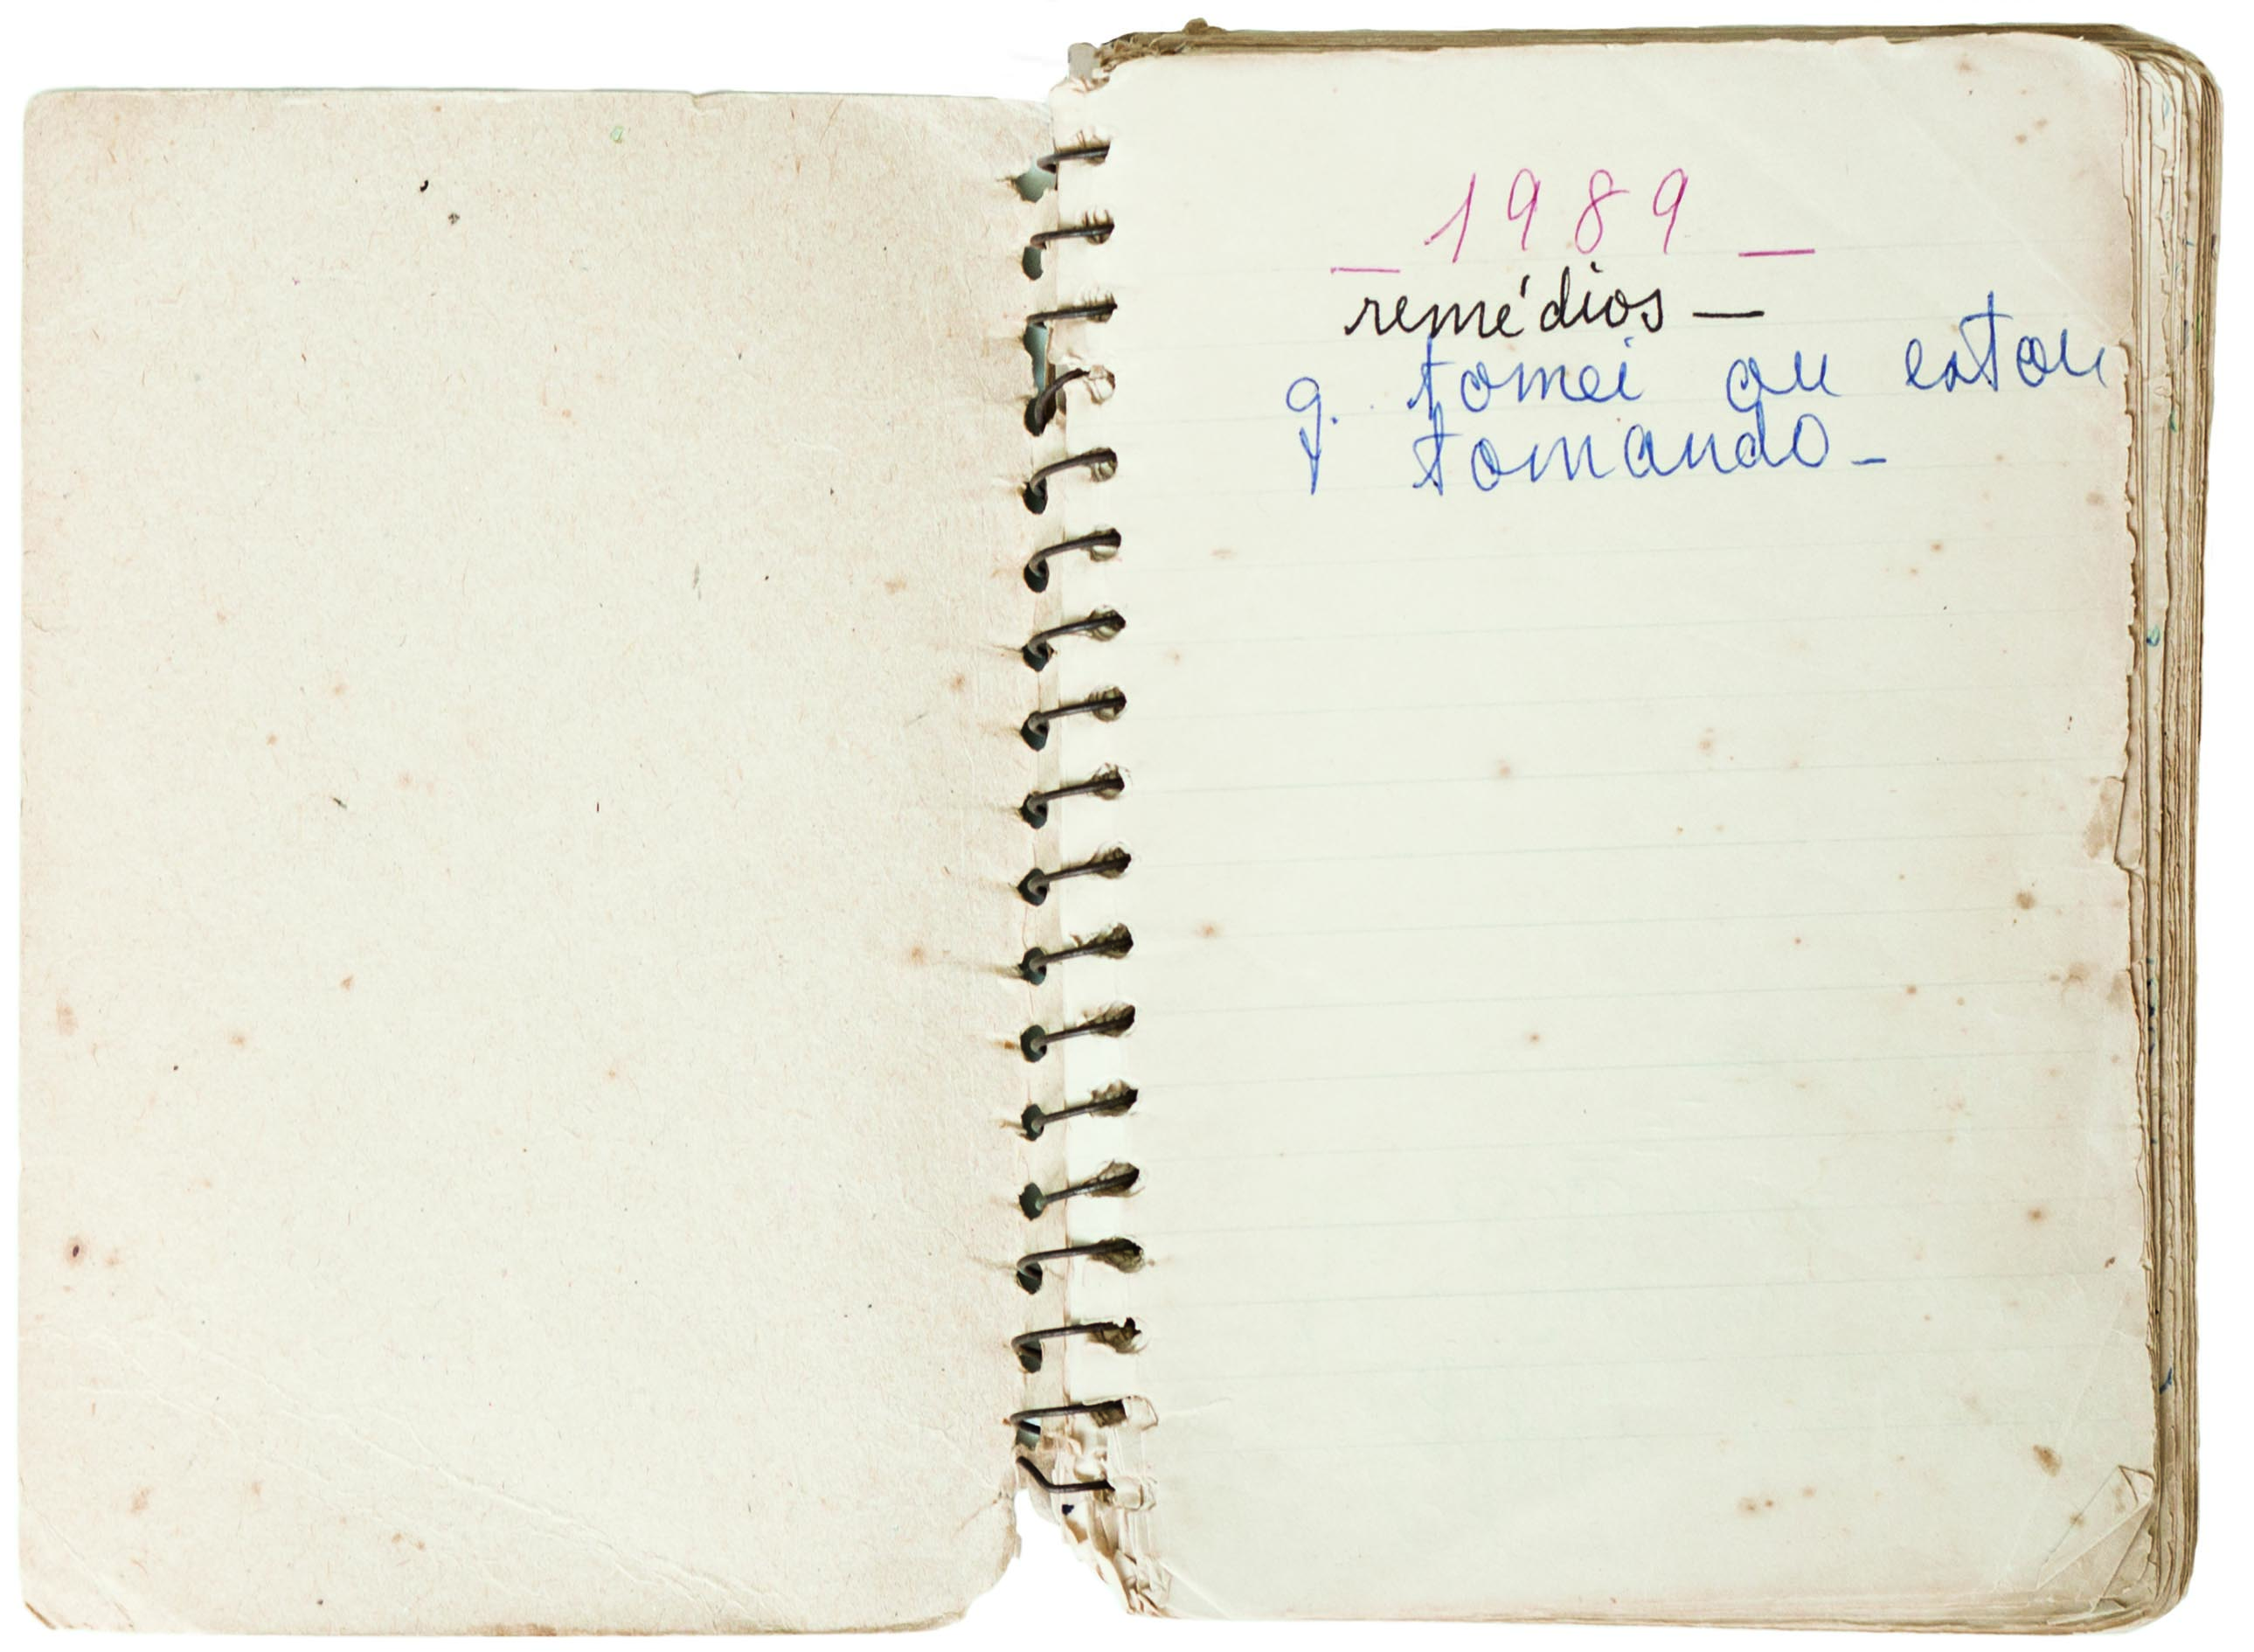 _ 1989 _
remédios —
q. tomei ou estou
tomando -